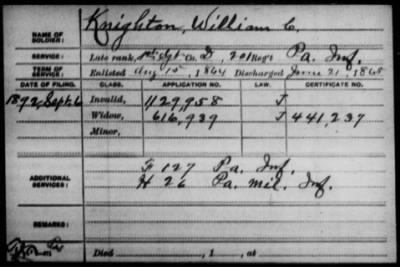 Knighton, William C.
NAME OF SOLDIER:
SERVICE: Late rank, 1st Sgt Co. D, 201 Reg't Pa. Inf.
TERM OF SERVICE: Enlisted Aug 15, 1864 Discharged June 21, 1865
DATE OF FILING. CLASS. APPLICATION NO. LAW. CERTIFICATE NO.
1892, Sept. 6 Invalid, 1129,958 J
Widow, 616,939 J 441,237
Minor,
F 127 Pa. Inf.
ADDITIONAL SERVICES: H 26 Pa. Mil. Inf.
REMARKS:
Died , 1 , at